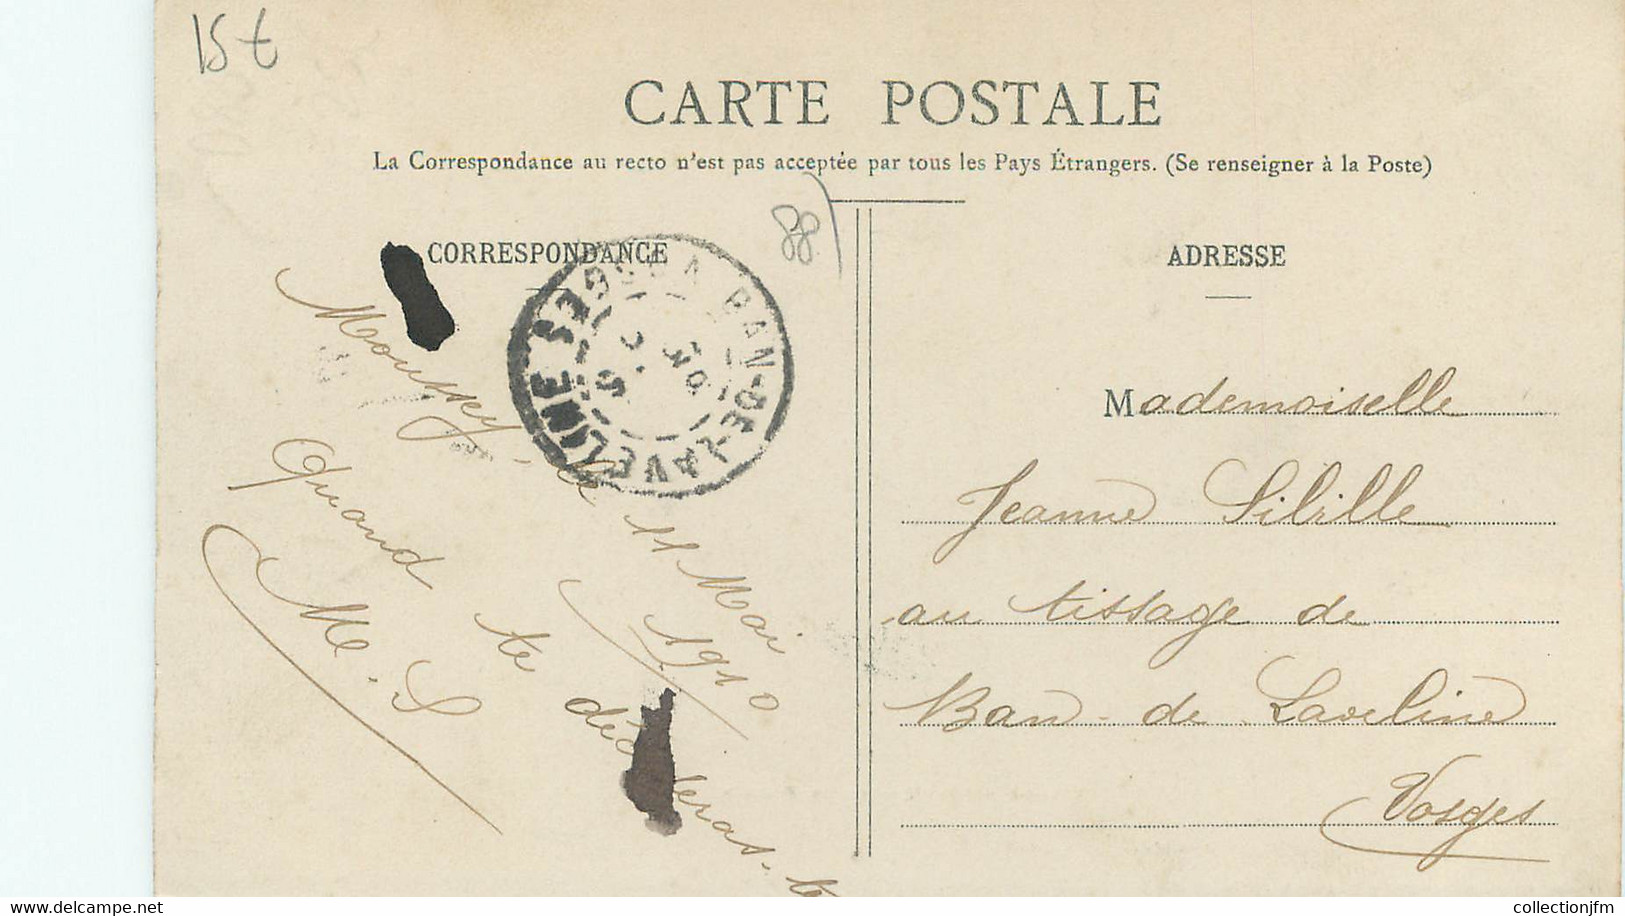 15 t
CARTE POSTALE
La Correspondance au recto n'est pas acceptée par tous les Pays Étrangers. (Se renseigner à la Poste)
88
CORRESPONDANCE
BAN-DE-LAVELINE VOSGES
Moussey, le 11 Mai
1910
Quand te décideras-
M. S
ADRESSE
Mademoiselle
Jeanne Sibille
au tissage de
Ban-de-Laveline
Vosges
https://www.delcampe.net
collectionjfm